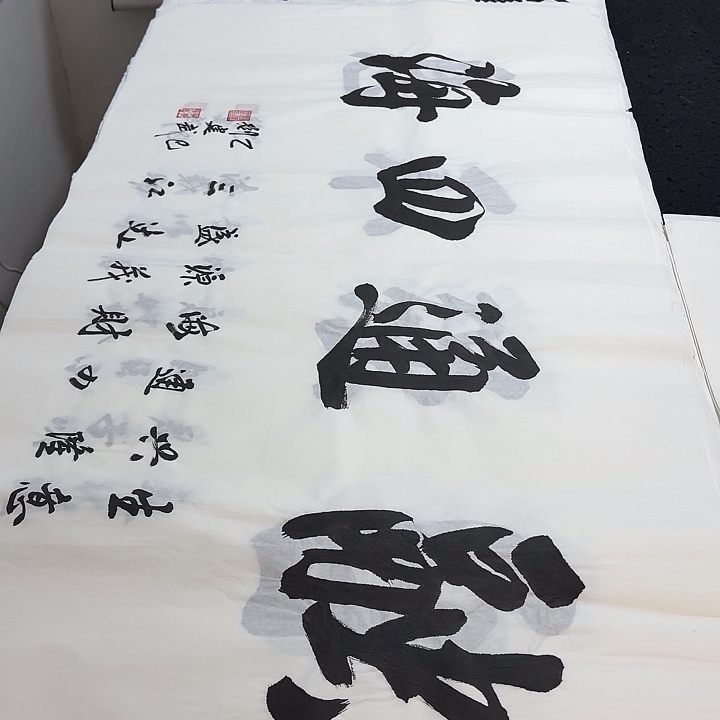 隆通四海
生意
興隆
通四
海財
源茂
盛達
三江
乙巳